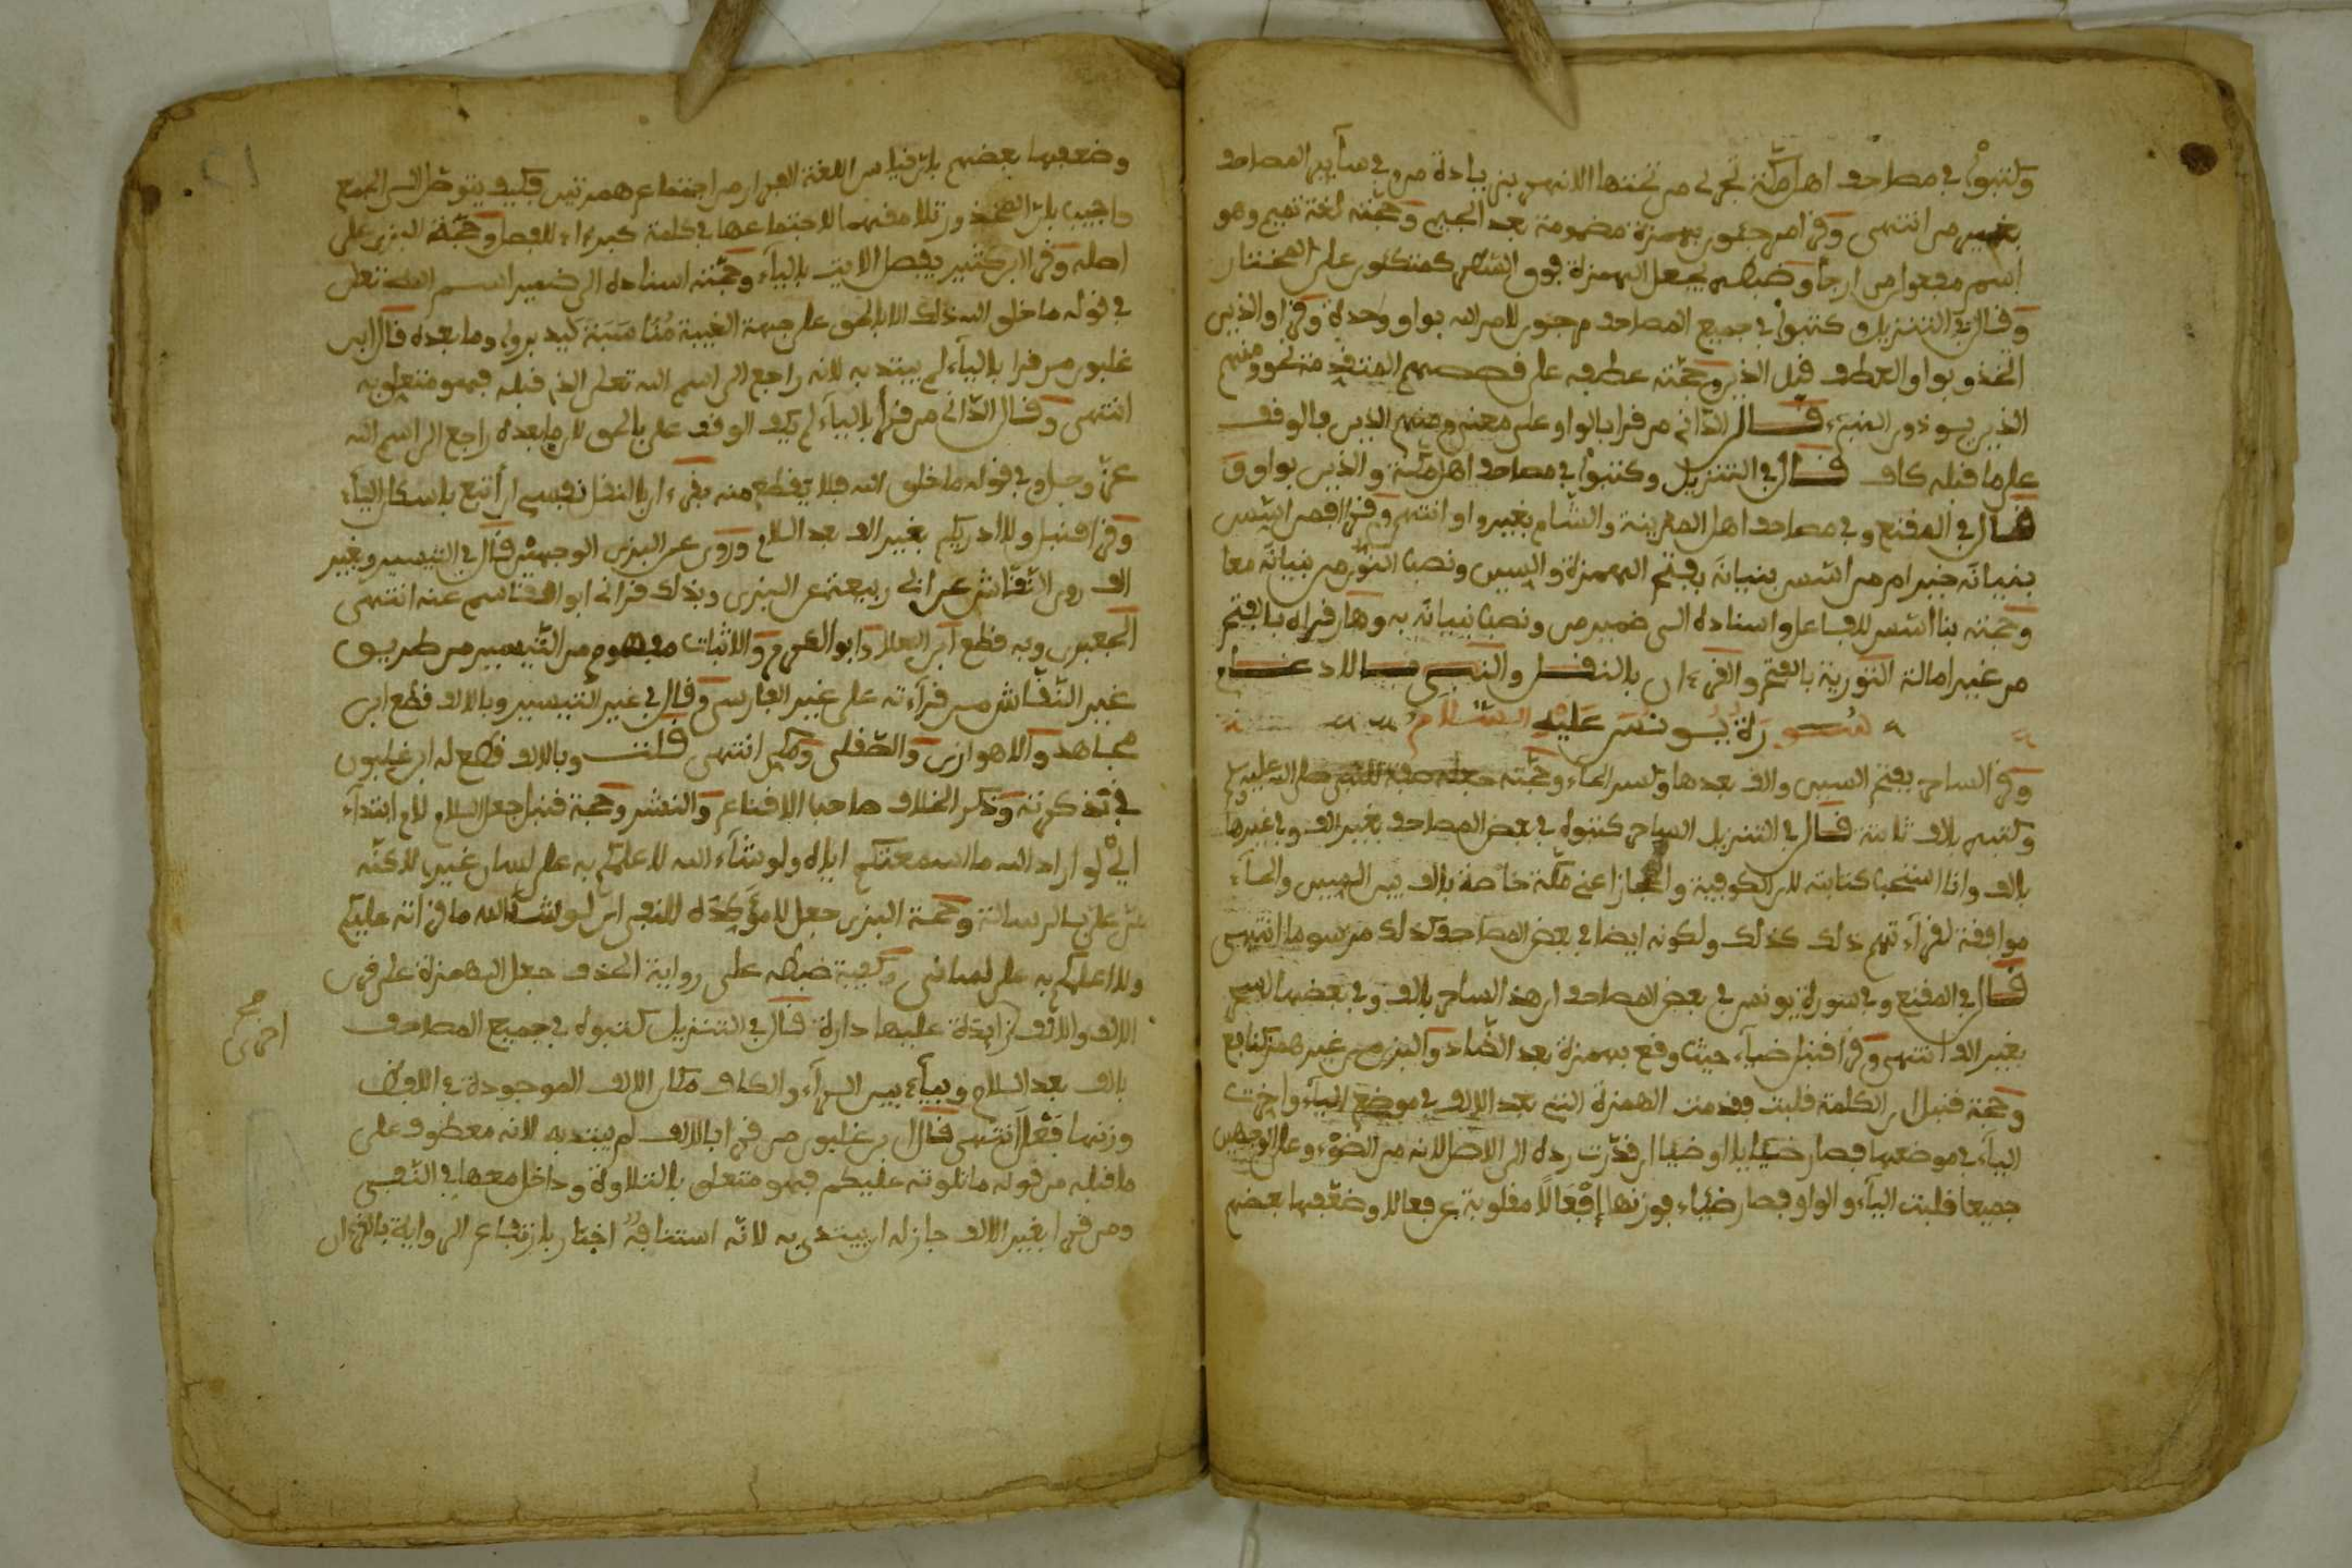 وكتبوا في مصاحف أهل مكة تجري من تحتها الانهر بزيادة من وفي سآير المصاحف
بغير من انتهى وقرأ مرجئون بهمزة مضمومة بعد الجيم وحجته لغة تميم وهو
اسم مفعول من ارجأ وضبطه بجعل الهمزة فوق كمتكئون على المختار
وقال في التنزيل وكتبوا في جميع المصاحف مرجون لامر الله بواو وحدة وقرأ والذين
اتخذو بواو العطف قبل الذين وحجته عطفه على قصصهم المتقدمة نحو ومنهم
الذين يوذون النبيء قال الداني من قرأ بالواو على معنى ومنهم الذين فالوقف
على ما قبله كاف قال في التنزيل وكتبوا في مصاحف أهل مكة والذين بواو و
قال في المقنع وفي مصاحف أهل المدينة والشام بغير واو انتهى وقرأ افمن اسس
بنيانه خير ام من اسس بنيانه بفتح الهمزة والسين ونصب النون من بنيانه معا
وحجته بنا اسس للفاعل واسناده الى ضمير من ونصب بنيانه به وهار قرأه بالفتح
من غير امالة التورية بالفتح والقرءان بالنقل
سورة يونس عليه السلام
وقرأ لساحر بفتح السين والف بعدها وكسر الحاء وحجته جعله صفة للنبي صلى الله عليه وسلم
وكتبه بالف ثابتة قال في التنزيل لساحر كتبوه في بعض المصاحف بغير الف وفي غيرها
بالف وانا استحب كتابته للكوفية والحجاز اعني مكة خاصة بالف بين السين والحاء
موافقة لقراءتهم ذلك كذلك ولكونه ايضا في بعض المصاحف كذلك مرسوما انتهى
قال في المقنع وفي سورة يونس في بعض المصاحف ان هذا لساحر بالف وفي بعضها لسحر
بغير الف انتهى وقرأ قنبل ضياء حيث وقع بهمزة بعد الضاد والبزي من غير همز كنافع
وحجة قنبل ان الكلمة قلبت فقدمت الهمزة التي بعد الالف في موضع الياء واخرت
الياء في موضعها فصار ضئايا او ضئاا ان قدرت رده الى الاصل لانه من الضوء وعلى الوجهين
جميعا قلبت الياء والواو فصار ضئاء فوزنها إفعالا مقلوبة عن فعالا وضعفها بعضهم
وضعفها بعضهم بان قياس اللغة الفرار من اجتماع همزتين فكيف يتوصل الى الجمع
واجيب بان المحذور تلاصقهما لا اجتماعهما في كلمة كبرءاء للفصل وحجة البزي على
اصله وقرأ ابن كثير يفصل الايت بالياء وحجته اسناده الى ضمير اسم الله تعلى
في قوله ما خلق الله ذلك الا بالحق على جهة الغيبة مناسبة وما بعده قال ابن
غلبون من قرا بالياء لم يبتد به لانه راجع الى اسم الله تعلى الذي قبله فهو متعلق به
انتهى وقال الداني من قرأ بالياء لم يكف الوقف على بالحق لان ما بعده راجع الى اسم الله
عز وجل في قوله ما خلق الله فلا يقطع منه بقرءان بالنقل نفسي ان أتبع باسكان الياء
وقرا قنبل ولا ادريكم بغير الف بعد اللام وروى عن البزي الوجهين قال في التيسير وبغير
الف روى النقاش عن ابي ربيعة عن البزي وبذلك قراني ابو القاسم عنه انتهى
الجعبري وبه قطع ابو العلا وابو العز والاثبات مفهوم من التيسير من طريق
غير النقاش من قرآءته على غير الفارسي وقال في غير التيسير وبالالف قطع ابن
مجاهد والاهوازي والصقلي ومكي انتهى قلت وبالالف قطع له ابن غلبون
في تذكرته وذكر الخلاف صاحب الاقناع والنشر وحجة قنبل جعل اللام لام ابتداء
اي لو اراد الله ما اسمعتكم اياه ولو شآء الله لاعلمكم به على لسان غيري لاكنه
من علي بالرسالة وحجة البزي جعل لا مؤكدة للنفي اي لو شآء الله ما قرأته عليكم
ولا اعلمكم به على لساني وكيفية ضبطه على رواية الحذف جعل الهمزة على قرى
الالف والالف زايدة عليها دارة قال في التنزيل كتبوه في جميع المصاحف
بالف بعد اللام وبياء بين الرآء والكاف مكان الالف الموجودة في اللفظ
وزنها فعل انتهى قال ابن غلبون من قرا بالالف لم يبتد به لانه معطوف على
ما قبله من قوله ما تلوته عليكم فهو متعلق بالتلاوة وداخل معها في النفي
ومن قرا بغير الالف جاز له ان يبتدي به لانه استئناف اخبار بارتفاع الرواية بالقرءان